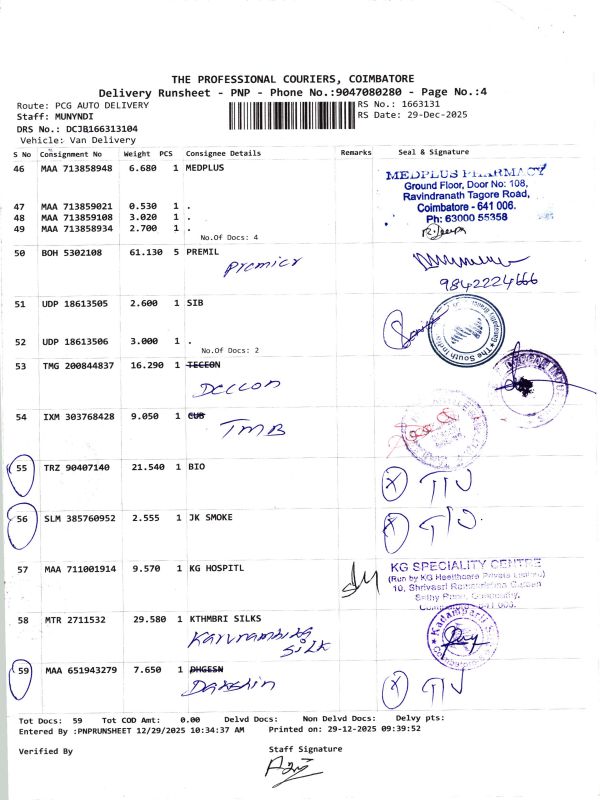 THE PROFESSIONAL COURIERS, COIMBATORE
Delivery Runsheet - PNP - Phone No.:9047080280 - Page No.:4
Route: PCG AUTO DELIVERY RS No.: 1663131
Staff: MUNYNDI RS Date: 29-Dec-2025
DRS No.: DCJB166313104
Vehicle: Van Delivery
S No Consignment No Weight PCS Consignee Details Remarks Seal & Signature
46 MAA 713858948 6.680 1 MEDPLUS
MEDPLUS PHARMACY
Ground Floor, Door No: 108,
Ravindranath Tagore Road,
Coimbatore - 641 006.
Ph: 63000 55358
47 MAA 713859021 0.530 1 .
48 MAA 713859108 3.020 1 .
49 MAA 713858934 2.700 1 .
No.Of Docs: 4
50 BOH 5302108 61.130 5 PREMIL
Premier
9842224666
51 UDP 18613505 2.600 1 SIB
The South Indian
52 UDP 18613506 3.000 1 .
No.Of Docs: 2
53 TMG 200844837 16.290 1 TECEON
Deccon
54 IXM 303768428 9.050 1 CUB
TMB
55 TRZ 90407140 21.540 1 BIO
X
56 SLM 385760952 2.555 1 JK SMOKE
X
57 MAA 711001914 9.570 1 KG HOSPITL
KG SPECIALITY CENTRE
(Run by KG Healthcare Private Limited)
58 MTR 2711532 29.580 1 KTHMBRI SILKS
SILK
59 MAA 651943279 7.650 1 DHGESN
Dakshin
X
Tot Docs: 59 Tot COD Amt: 0.00 Delvd Docs: Non Delvd Docs: Delvy pts:
Entered By :PNPRUNSHEET 12/29/2025 10:34:37 AM Printed on: 29-12-2025 09:39:52
Verified By Staff Signature